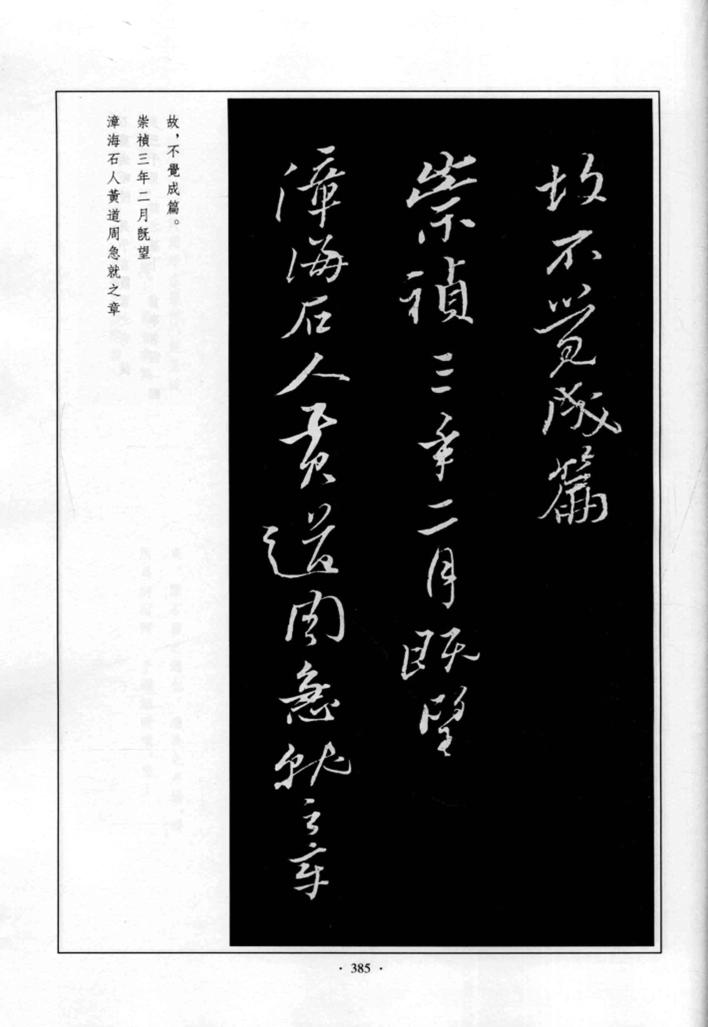 故不覺成篇
崇禎三年二月既望
漳海石人黃道周急就之章
故，不覺成篇。
崇禎三年二月既望
漳海石人黃道周急就之章
· 385 ·